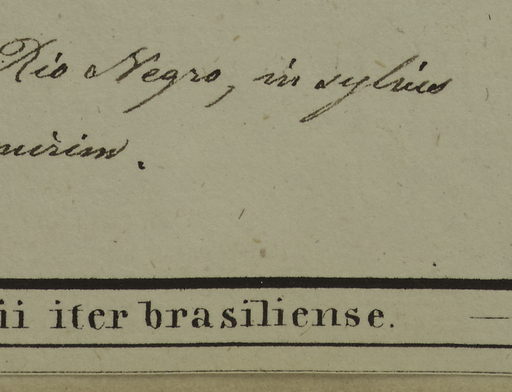 Rio Negro, in sylvis
mirim.
ii iter brasiliense. —